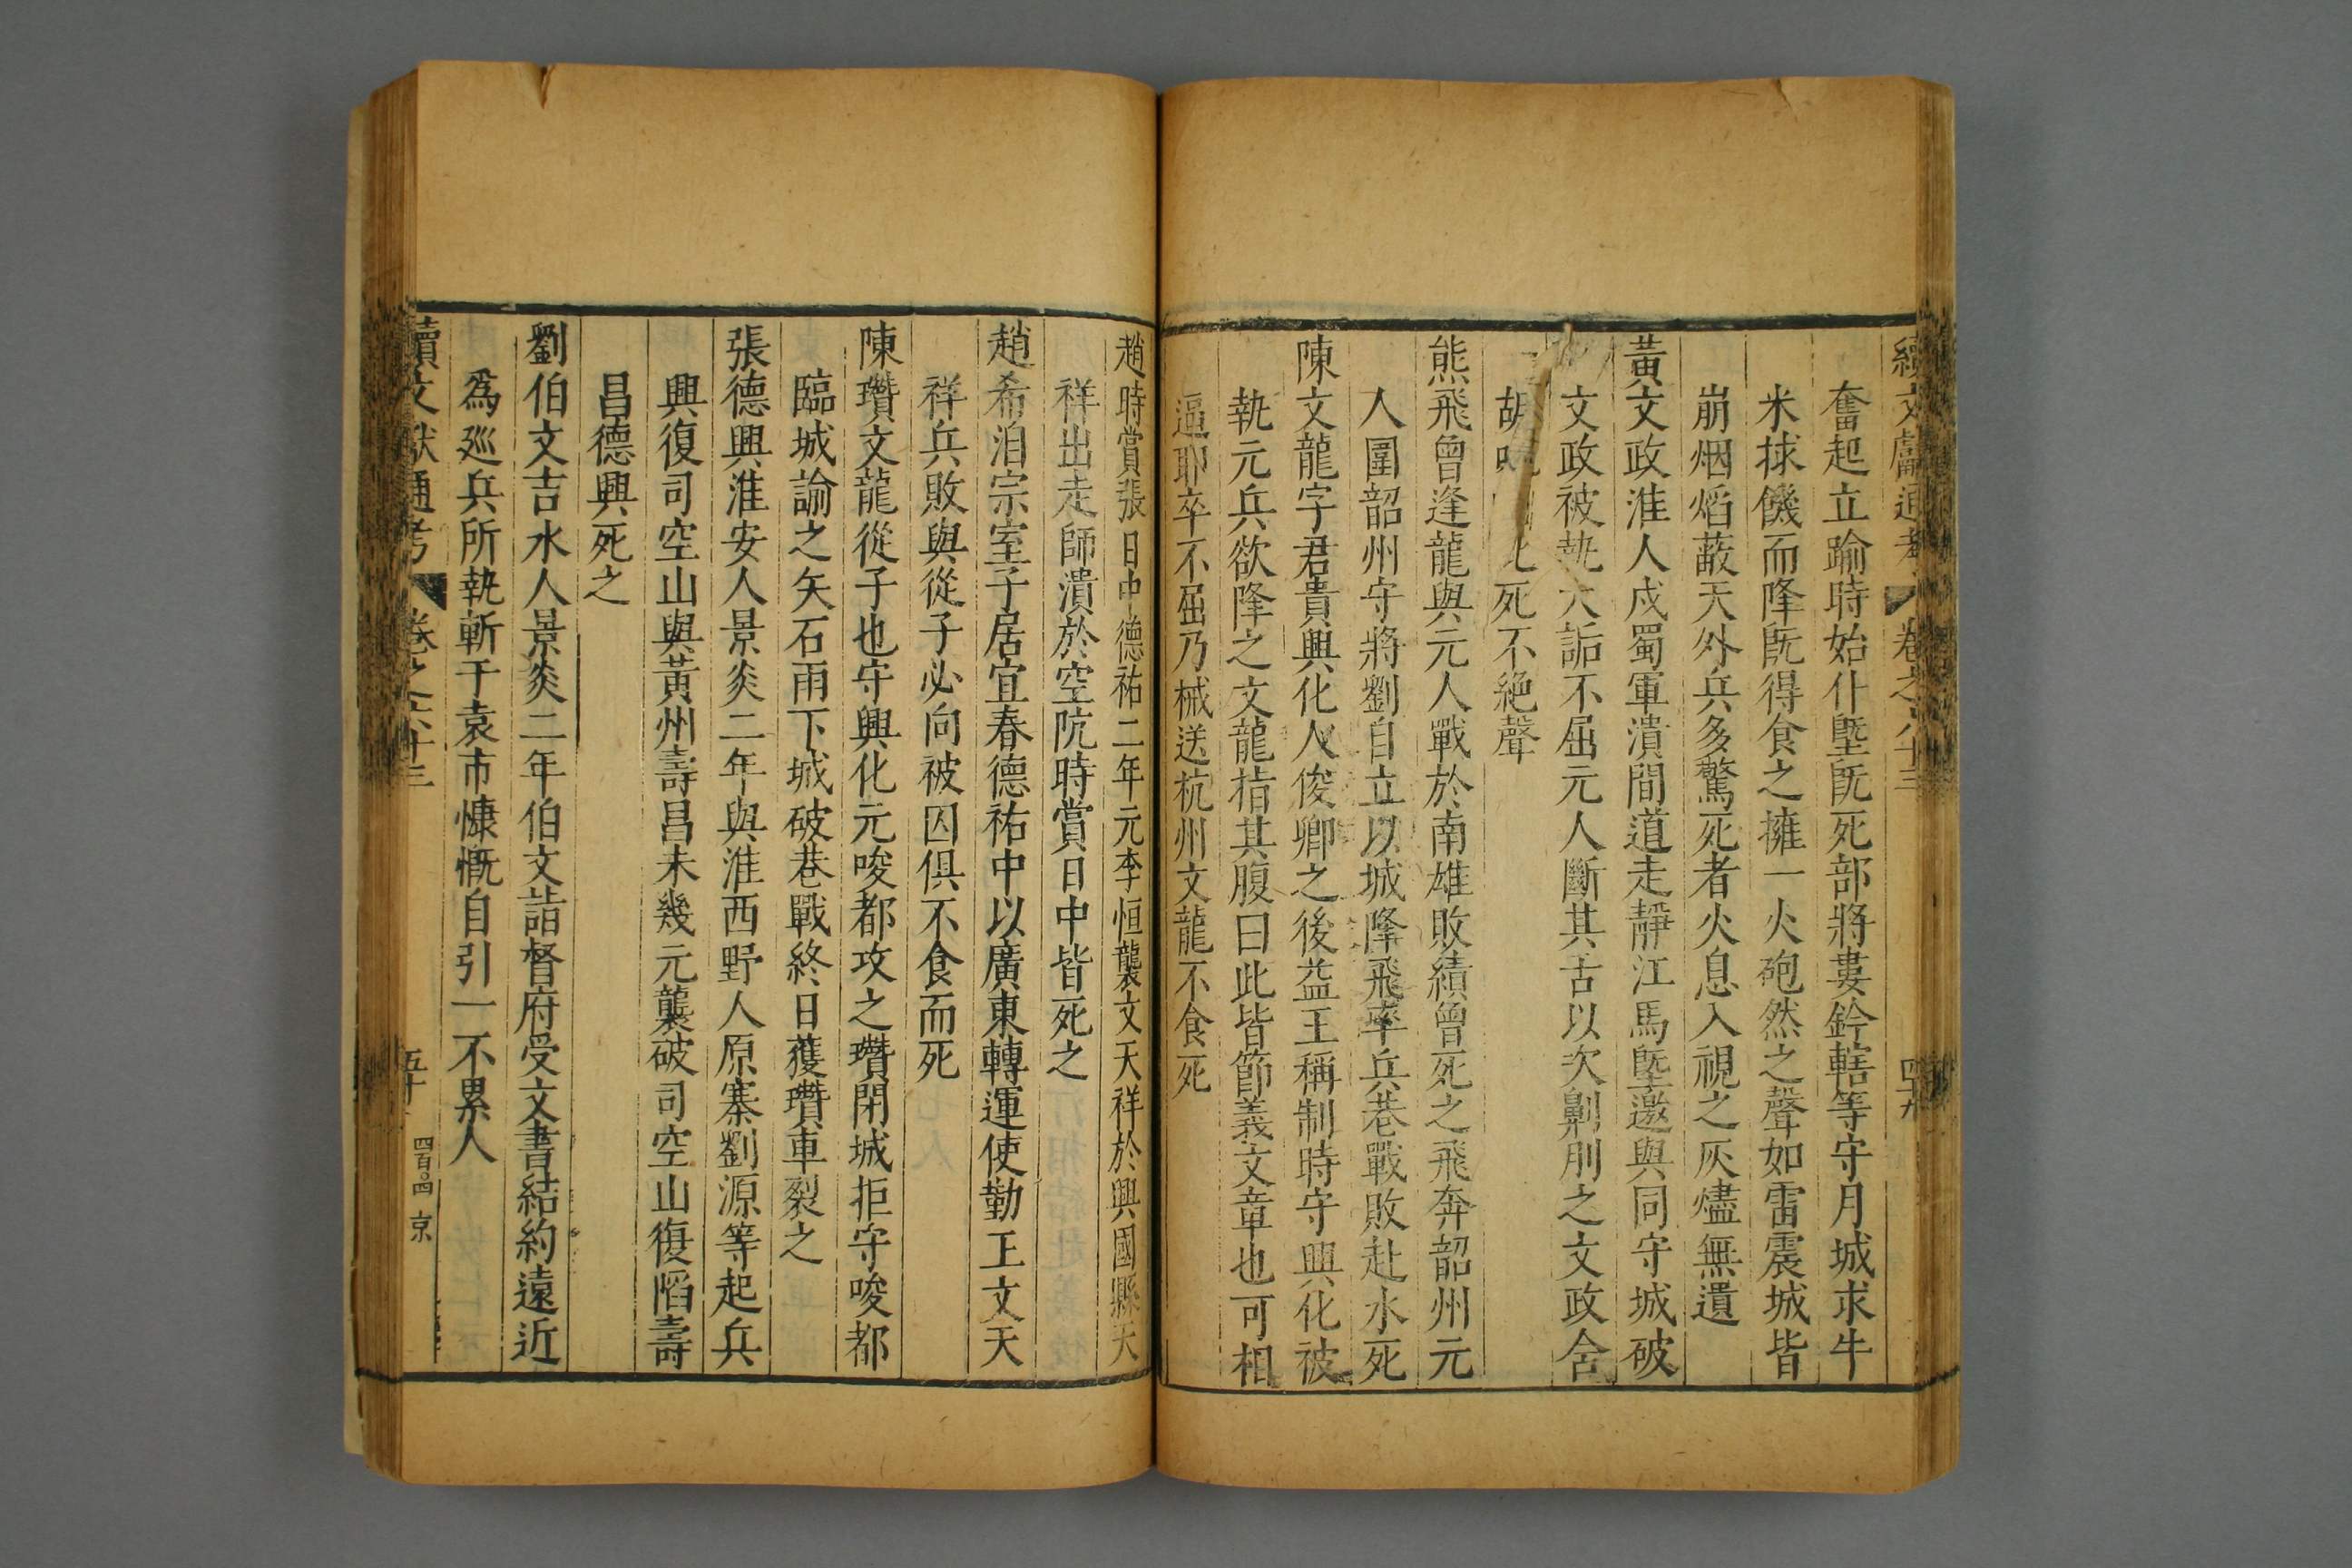 續文獻通考 卷之八十三 四十九
奮起立踰時始仆塈旣死部將婁鈐轄等守月城求牛
米救饑而降旣得食之擁一火砲然之聲如雷震城皆
崩烟焰蔽天外兵多驚死者火息入視之灰燼無遺
黃文政淮人戍蜀軍潰間道走靜江馬塈邀與同守城破
文政被執大詬不屈元人斷其舌以次劓刖之文政含
胡 死不絕聲
熊飛曾逢龍與元人戰於南雄敗績曾死之飛奔韶州元
人圍韶州守將劉自立以城降飛率兵巷戰敗赴水死
陳文龍字君賁興化人俊卿之後益王稱制時守興化被
執元兵欲降之文龍指其腹曰此皆節義文章也可相
逼耶卒不屈乃械送杭州文龍不食死
趙時賞張日中德祐二年元李恒襲文天祥於興國縣天
祥出走師潰於空阬時賞日中皆死之
趙希洎宗室子居宜春德祐中以廣東轉運使勤王文天
祥兵敗與從子必向被囚俱不食而死
陳瓚文龍從子也守興化元唆都攻之瓚閉城拒守唆都
臨城諭之矢石雨下城破巷戰終日獲瓚車裂之
張德興淮安人景炎二年與淮西野人原寨劉源等起兵
興復司空山與黃州壽昌未幾元襲破司空山復陷壽
昌德興死之
劉伯文吉水人景炎二年伯文詣督府受文書結約遠近
爲廵兵所執斬于袁市慷慨自引一不累人
續文獻通考 卷之八十三 五十 四百四 京